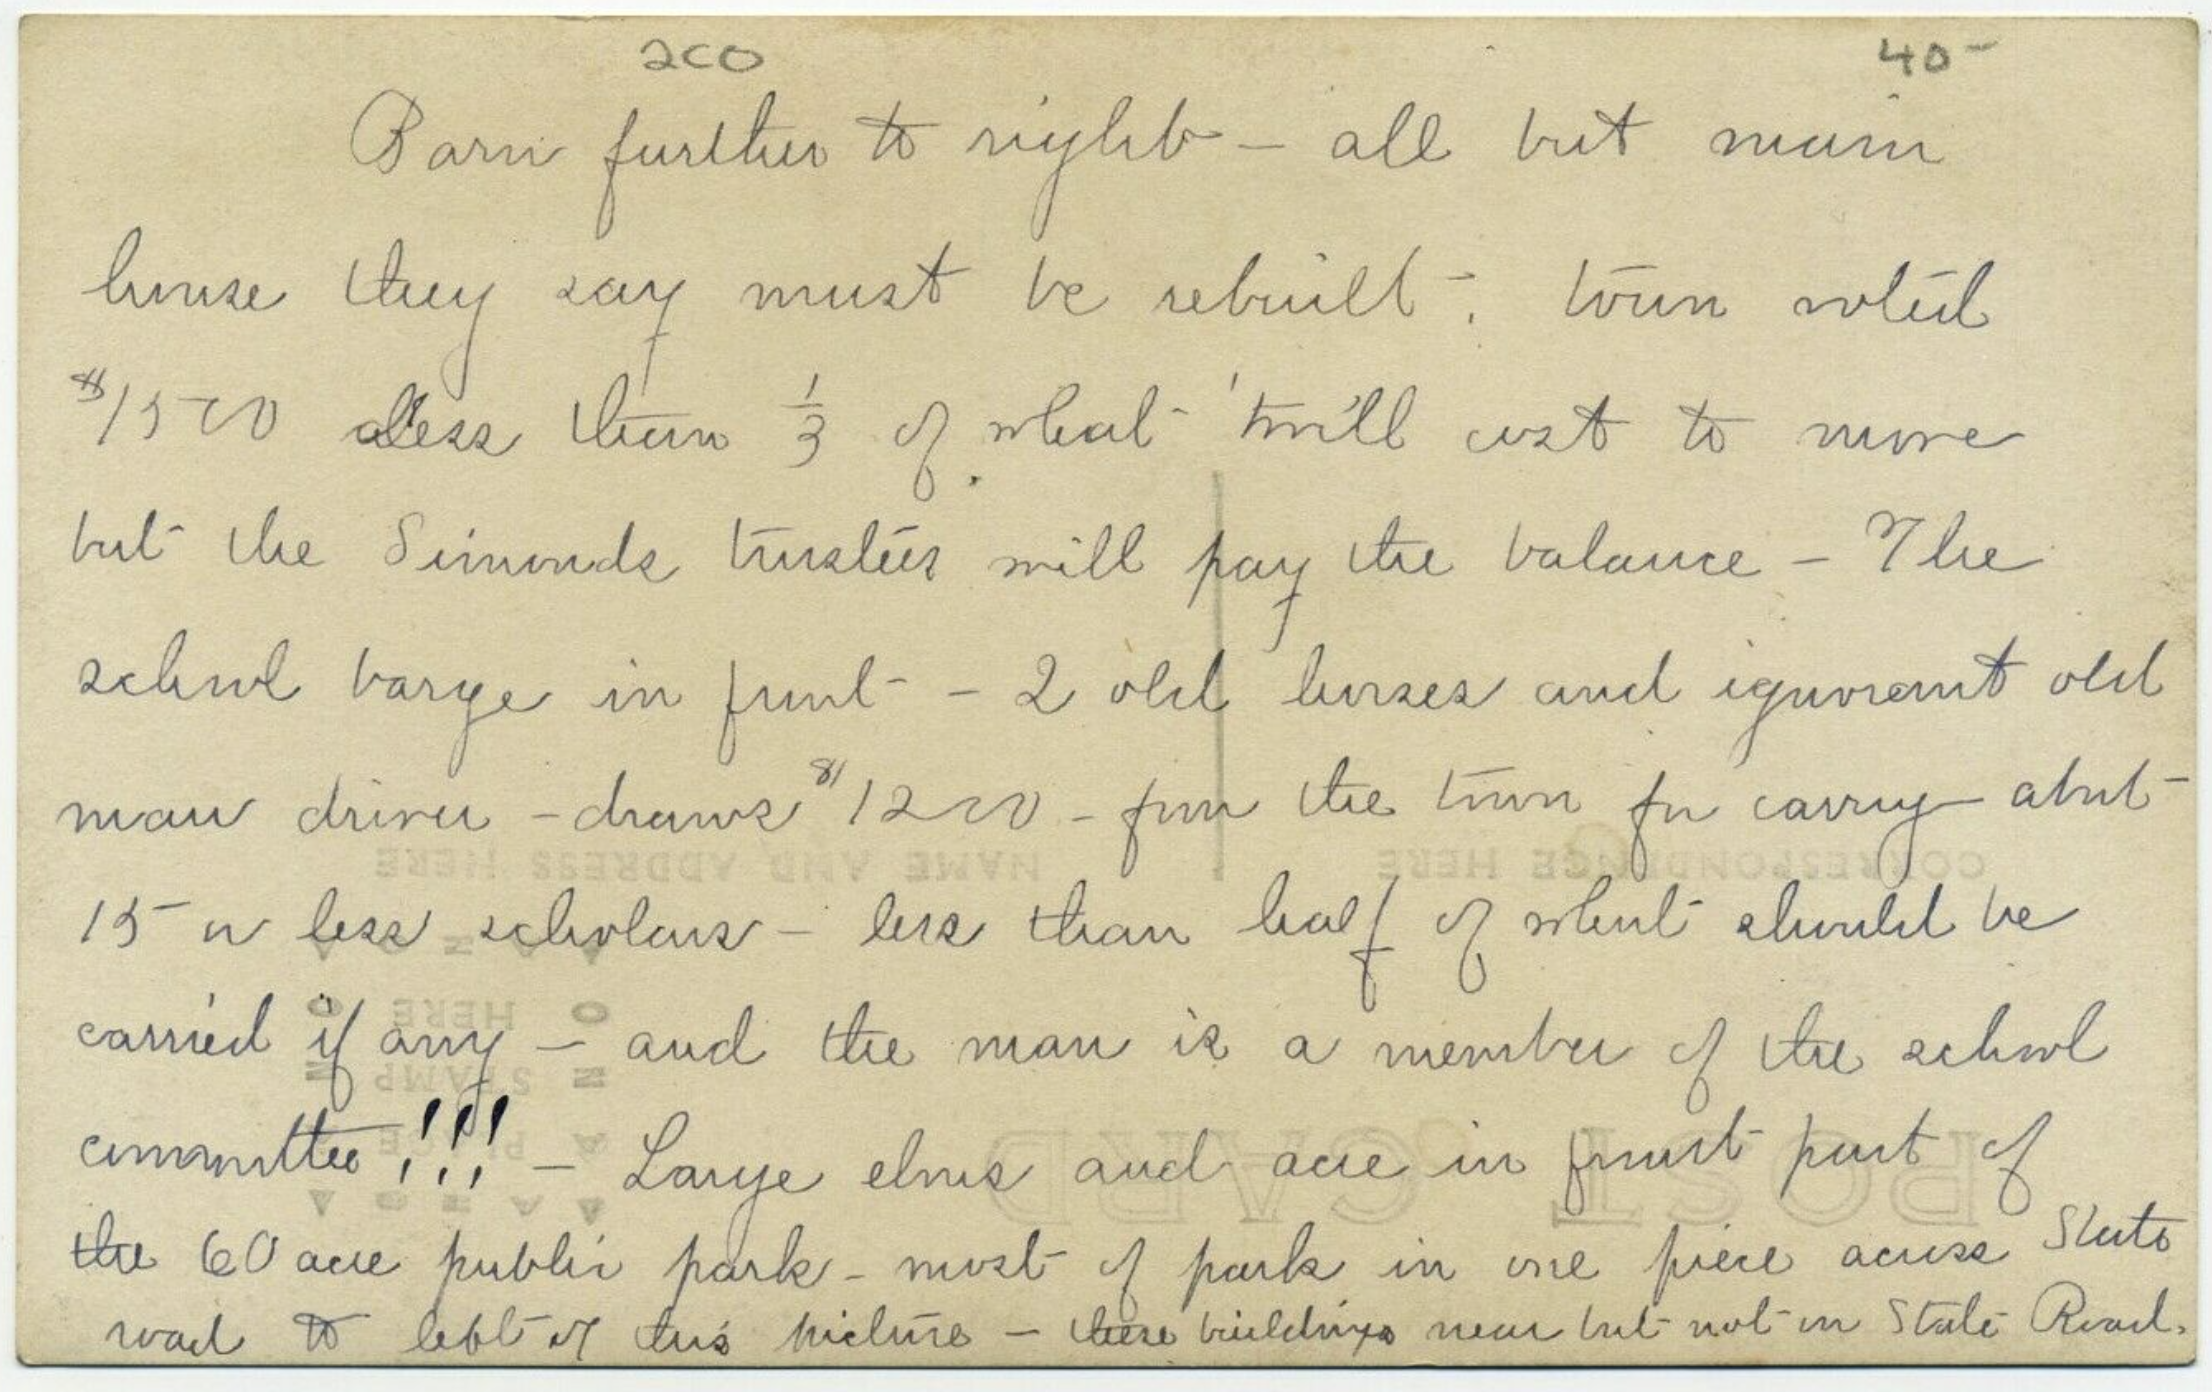 200 40-
Barn further to right - all but main
house they say must be rebuilt - : town voted
$1500 less than 1/3 of what 'twill cost to move
but the Simonds trustees will pay the balance - The
school barge in front - 2 old horses and ignorant old
man driver - draws $1200 - from the town for carry- about
15 or less scholars - less than half of what should be
carried if any - and the man is a member of the school
committee!!! - Large elms and acre in front part of
the 60 acre public park - most of park in one piece across State
road to left of this picture - these buildings near but not on State Road.
CORRESPONDENCE HERE NAME AND ADDRESS HERE
POST CARD
PLACE
STAMP
HERE